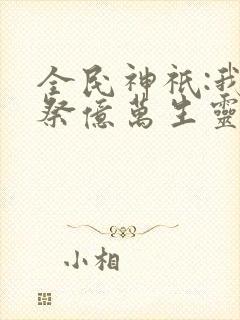 全民神祇:我
祭億萬生靈
小相